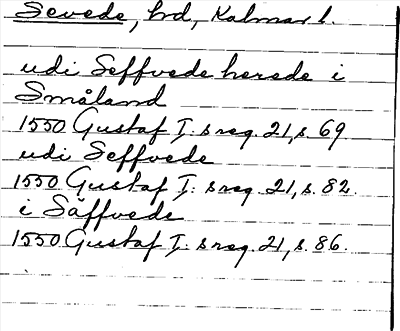 Sevede, hd, Kalmar l.
udi Seffvede herede i
Småland
1550 Gustaf I:s reg. 21, s. 69
udi Seffvede
1550 Gustaf I:s reg. 21, s. 82.
i Säffvede
1550 Gustaf I:s reg. 21, s. 86.